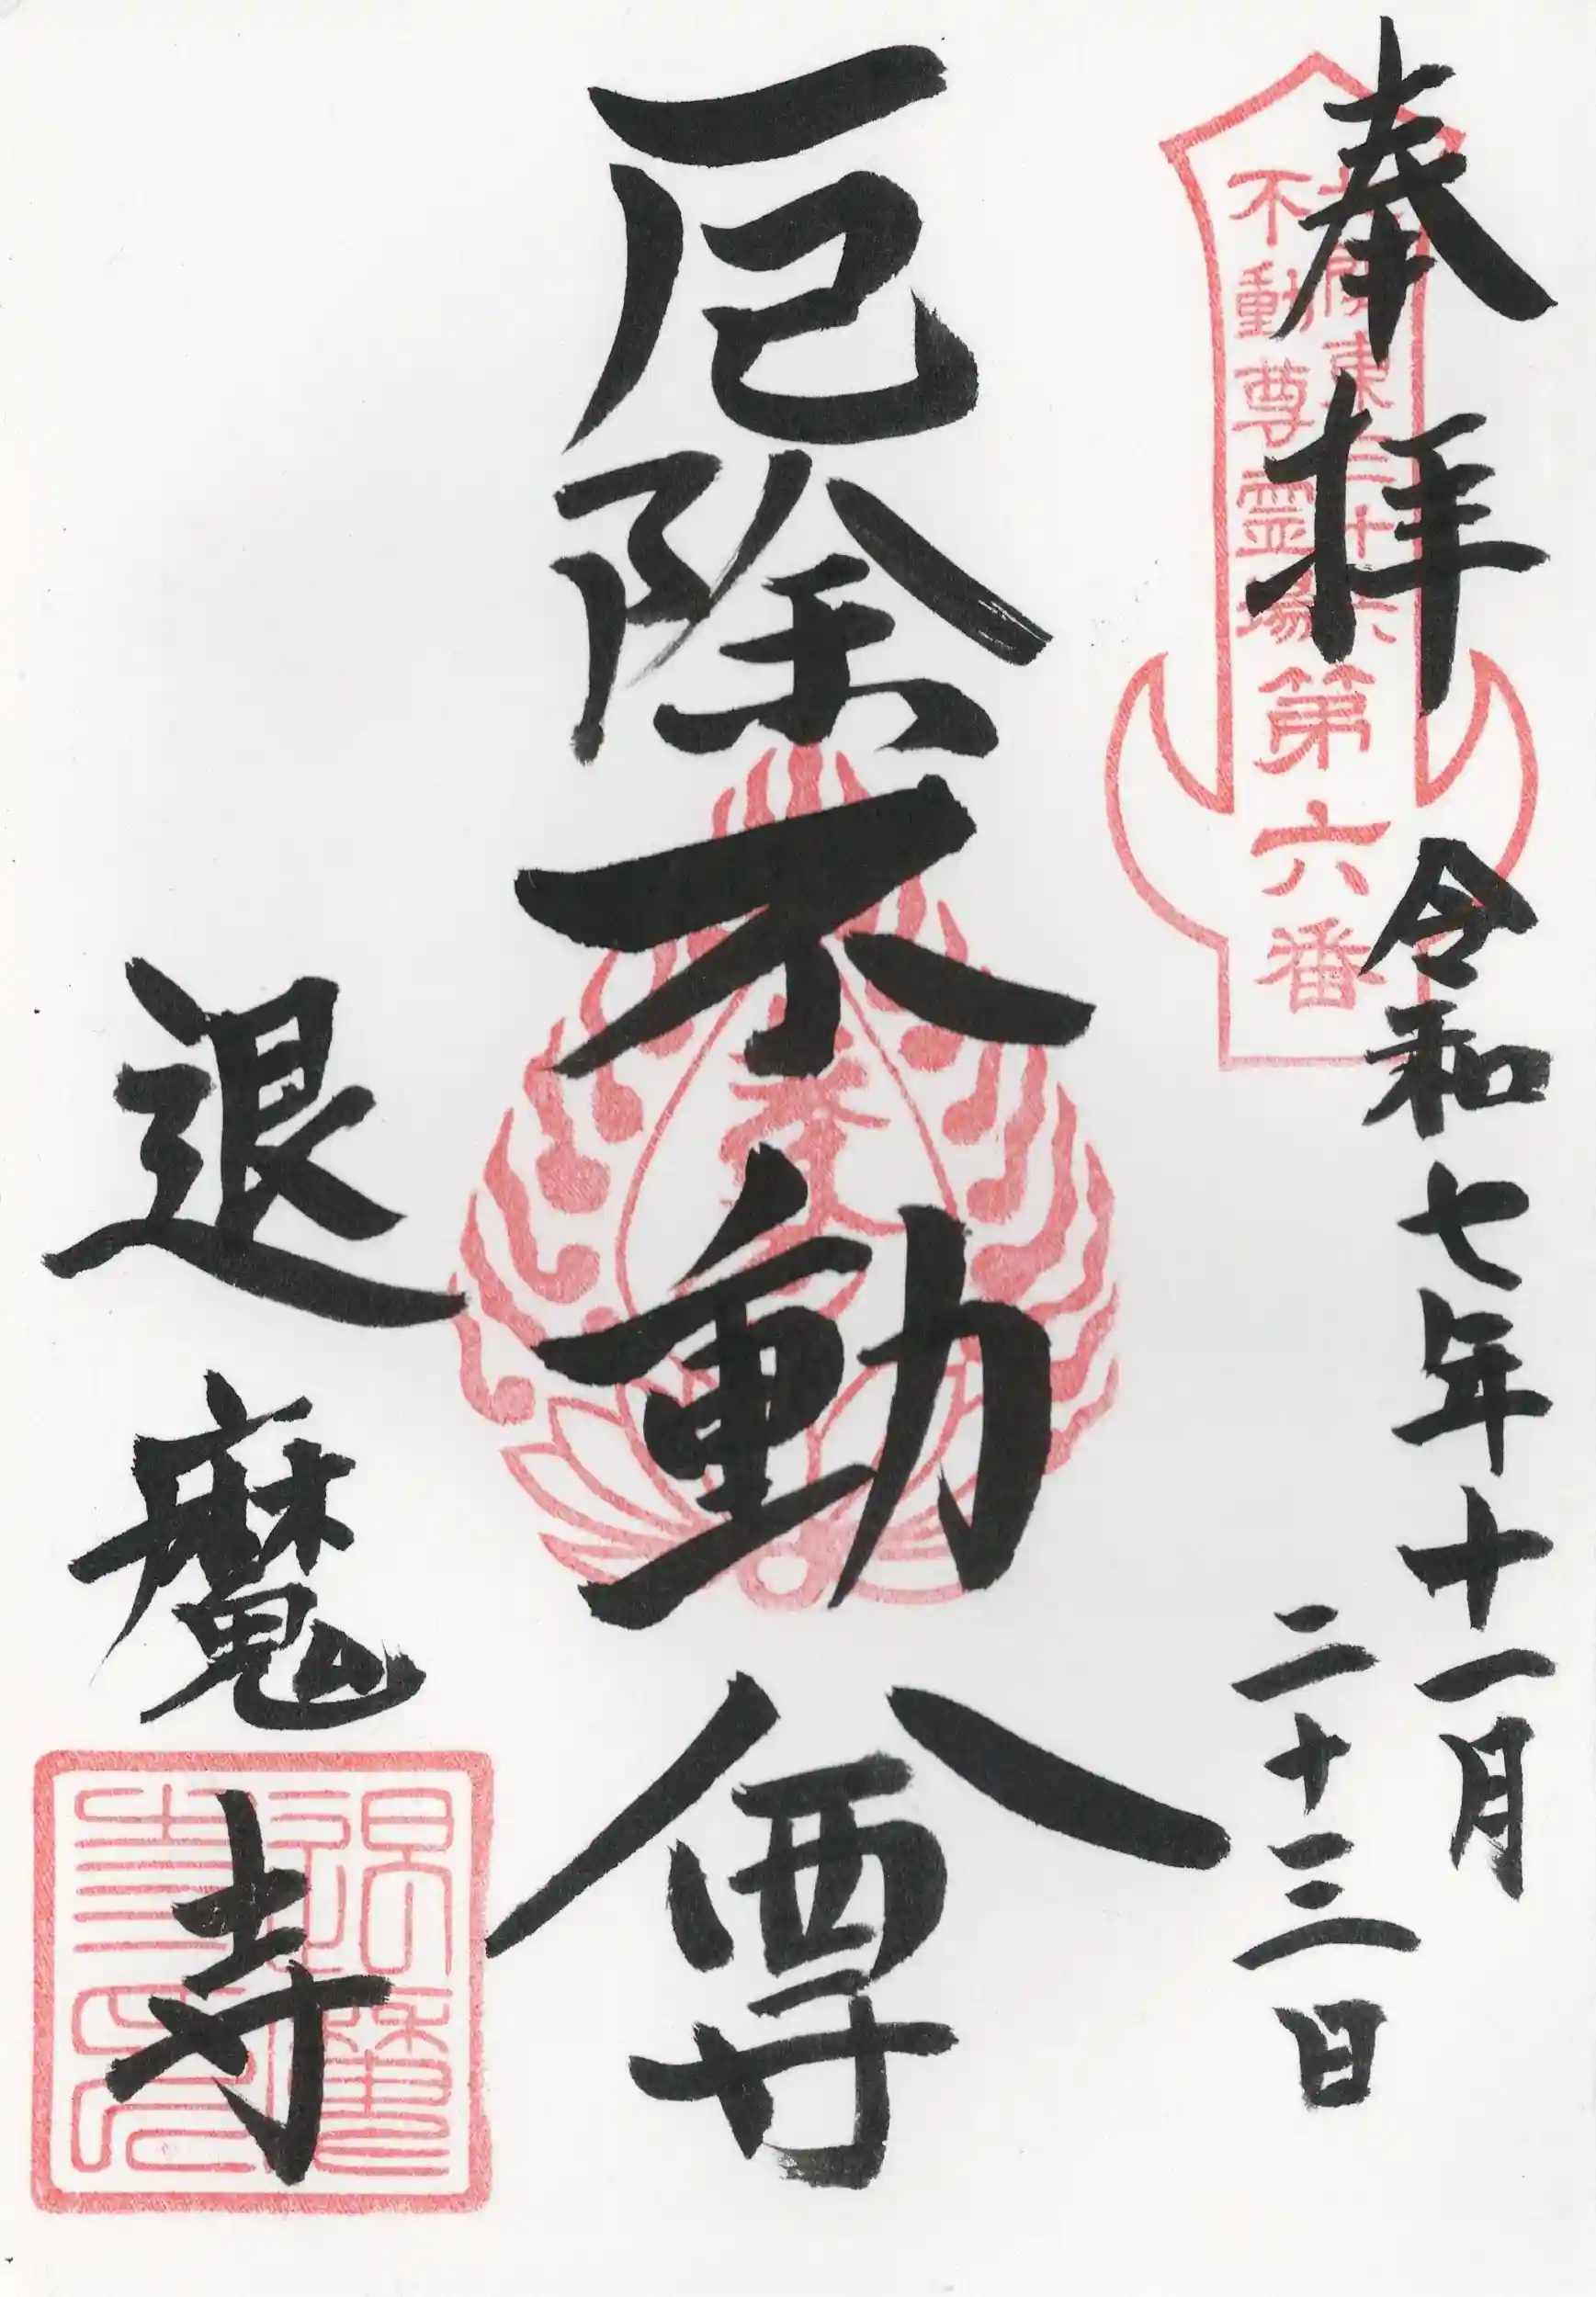 奉拝
関東三十六
不動尊霊場
第六番
令和七年十一月
二十三日
厄除不動尊
退魔寺